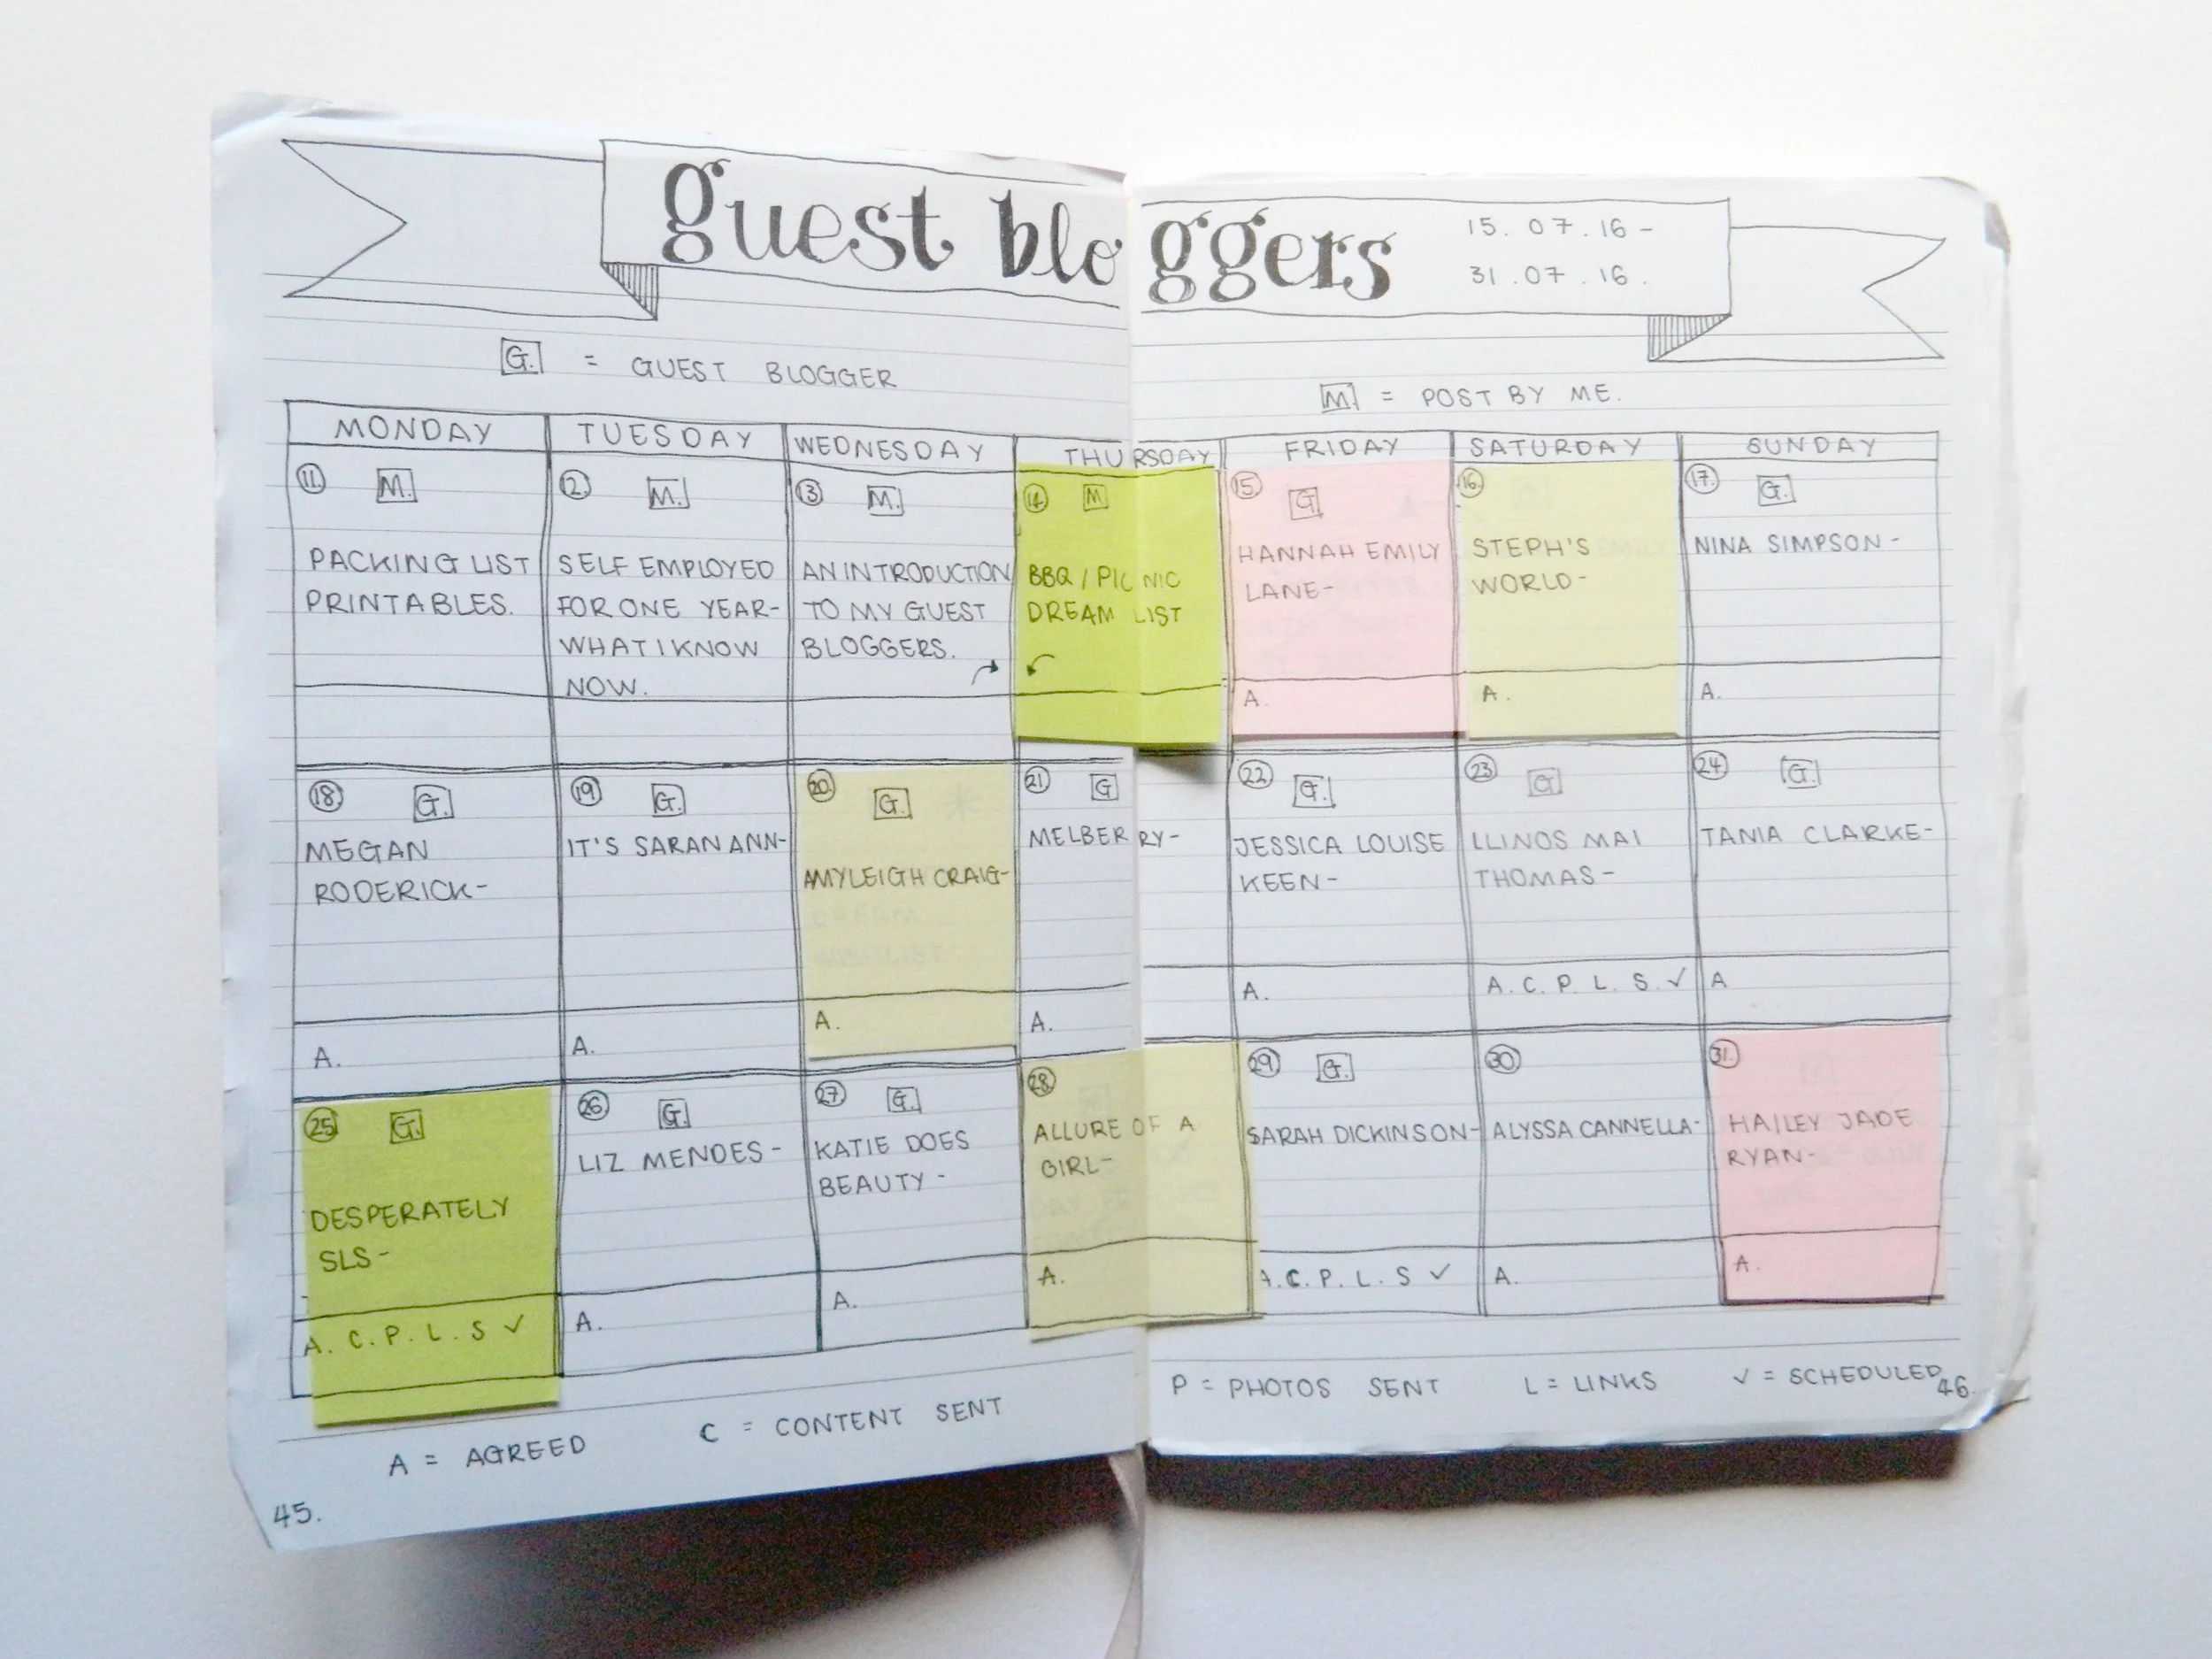 guest bloggers
15.07.16 -
31.07.16.
G. = GUEST BLOGGER
M. = POST BY ME.
MONDAY TUESDAY WEDNESDAY THURSDAY FRIDAY SATURDAY SUNDAY
11 M.
PACKING LIST
PRINTABLES.
12. M.
SELF EMPLOYED
FOR ONE YEAR-
WHAT I KNOW
NOW.
13 M.
AN INTRODUCTION
TO MY GUEST
BLOGGERS.
14 M
BBQ / PICNIC
DREAM LIST
15. G
HANNAH EMILY
LANE-
A.
16.
STEPH'S
WORLD-
A.
17. G.
NINA SIMPSON-
A.
18 G.
MEGAN
RODERICK-
A.
19 G.
IT'S SARAN ANN-
A.
20. G.
AMYLEIGH CRAIG-
A.
21 G
MELBERRY-
A.
22 G.
JESSICA LOUISE
KEEN-
A.
23 G
LLINOS MAI
THOMAS-
A. C. P. L. S. ✓
24 G.
TANIA CLARKE-
A
25 G.
DESPERATELY
SLS-
A. C. P. L. S ✓
26 G.
LIZ MENDES-
A.
27 G.
KATIE DOES
BEAUTY-
A.
28
ALLURE OF A
GIRL-
A.
29 G.
SARAH DICKINSON-
A. C. P. L. S ✓
30
ALYSSA CANNELLA-
A.
31.
HAILEY JADE
RYAN-
A.
A = AGREED C = CONTENT SENT P = PHOTOS SENT L = LINKS ✓ = SCHEDULED
45.
46.